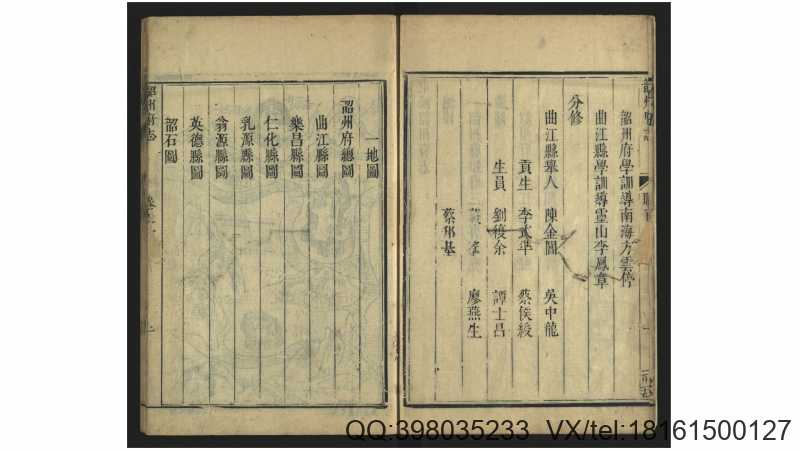 韶州府學訓導南海方雲停
曲江縣學訓導靈山李鳳章
分修
曲江縣舉人 陳金圖 吳中龍
貢生 李式準 蔡俟綬
生員 劉稷余 譚士昌
廖燕生
蔡邦基
韶州府志
一地圖
韶州府總圖
曲江縣圖
樂昌縣圖
仁化縣圖
乳源縣圖
翁源縣圖
英德縣圖
韶石圖
韶州府志
QQ:398035233 VX/tel:18161500127